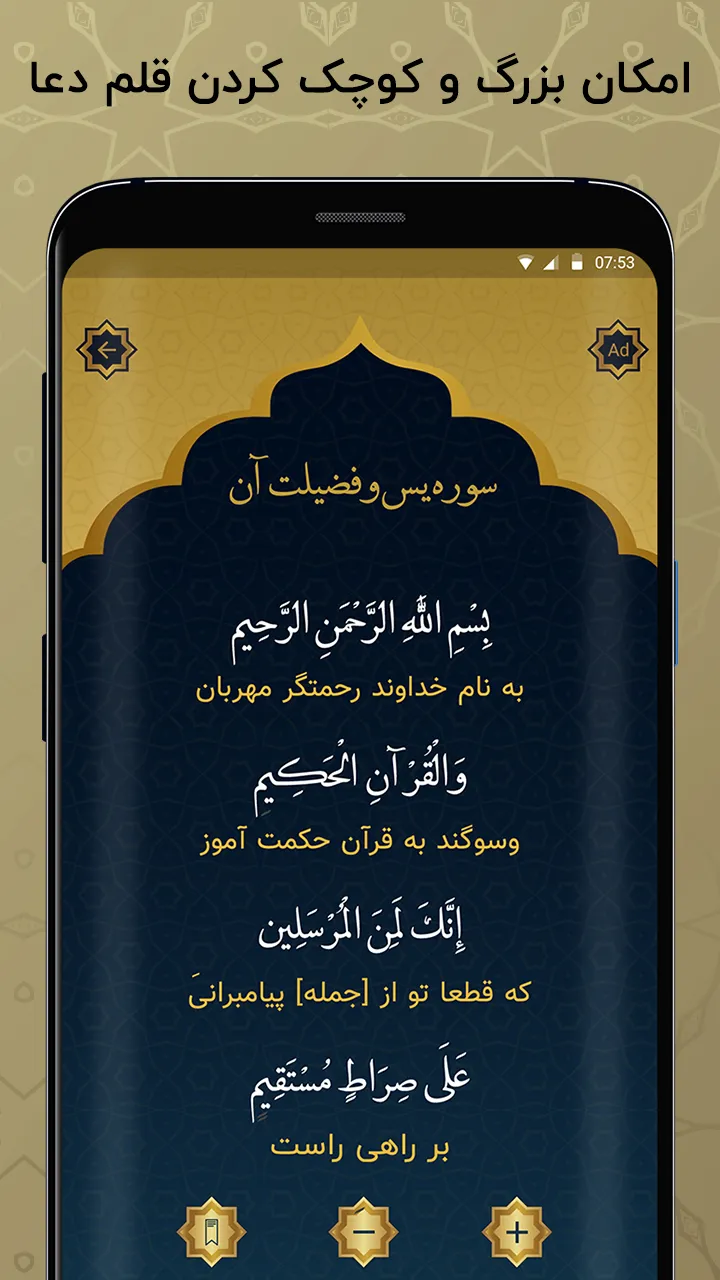 امکان بزرگ و کوچک کردن قلم دعا
07:53
Ad
سوره یس و فضیلت آن
بِسْمِ اللَّهِ الرَّحْمَنِ الرَّحِيمِ
به نام خداوند رحمتگر مهربان
وَالْقُرْآنِ الْحَكِيمِ
وسوگند به قرآن حکمت آموز
إِنَّكَ لَمِنَ الْمُرْسَلِين
که قطعا تو از [جمله] پیامبرانیَ
عَلَى صِرَاطٍ مُسْتَقِيمٍ
بر راهی راست